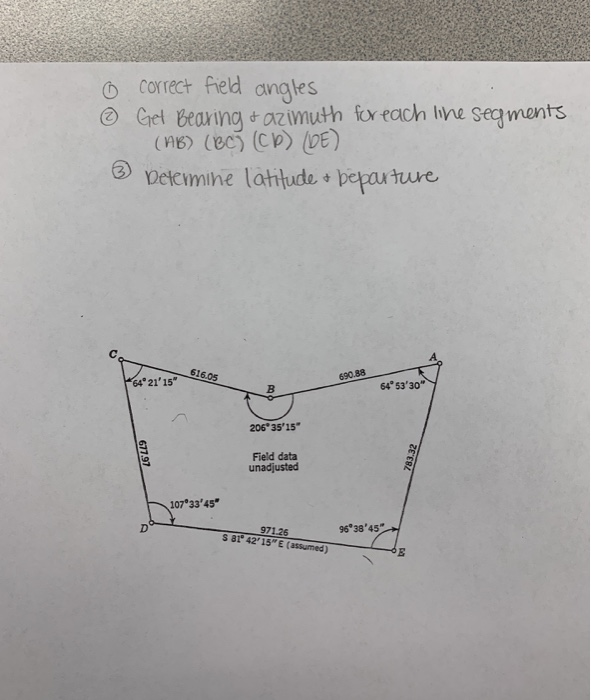 ① correct field angles
② Get Bearing + azimuth for each line segments
(AB) (BC) (CD) (DE)
③ Determine latitude + Departure
C
A
616.05
690.88
64° 21' 15"
B
64° 53' 30"
206° 35' 15"
677.97
Field data
unadjusted
783.32
107° 33' 45"
D
971.26
96° 38' 45"
S 81° 42' 15" E (assumed)
E